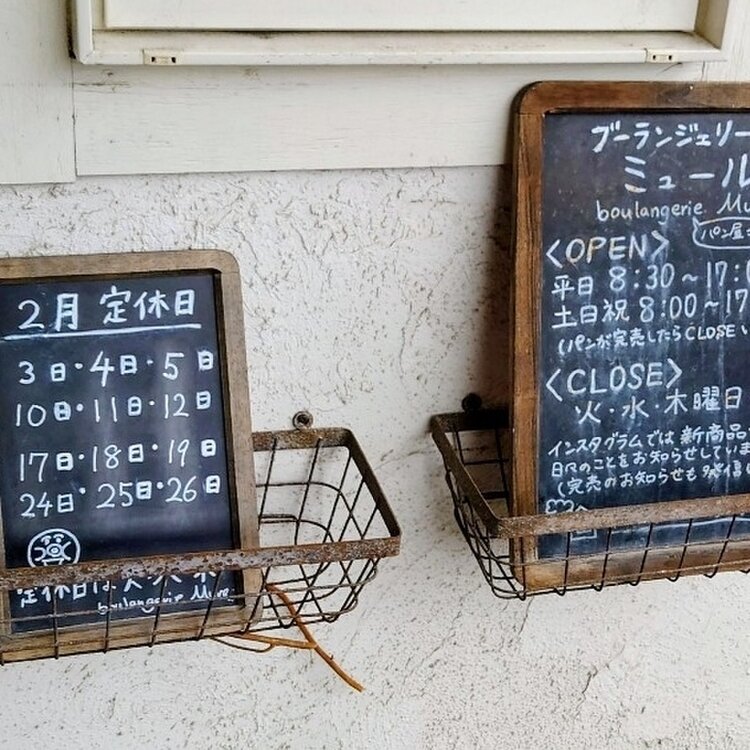 2月 定休日
3日・4日・5日
10日・11日・12日
17日・18日・19日
24日・25日・26日
定休日は
boulangerie Mure
ブーランジェリー
ミュール
boulangerie Mu
パン屋
<OPEN>
平日 8:30~17:
土日祝 8:00~17
(パンが完売したらCLOSE
<CLOSE>
火・水・木曜日
インスタグラムでは 新商品
日々のことをお知らせしていま
(完売のお知らせも